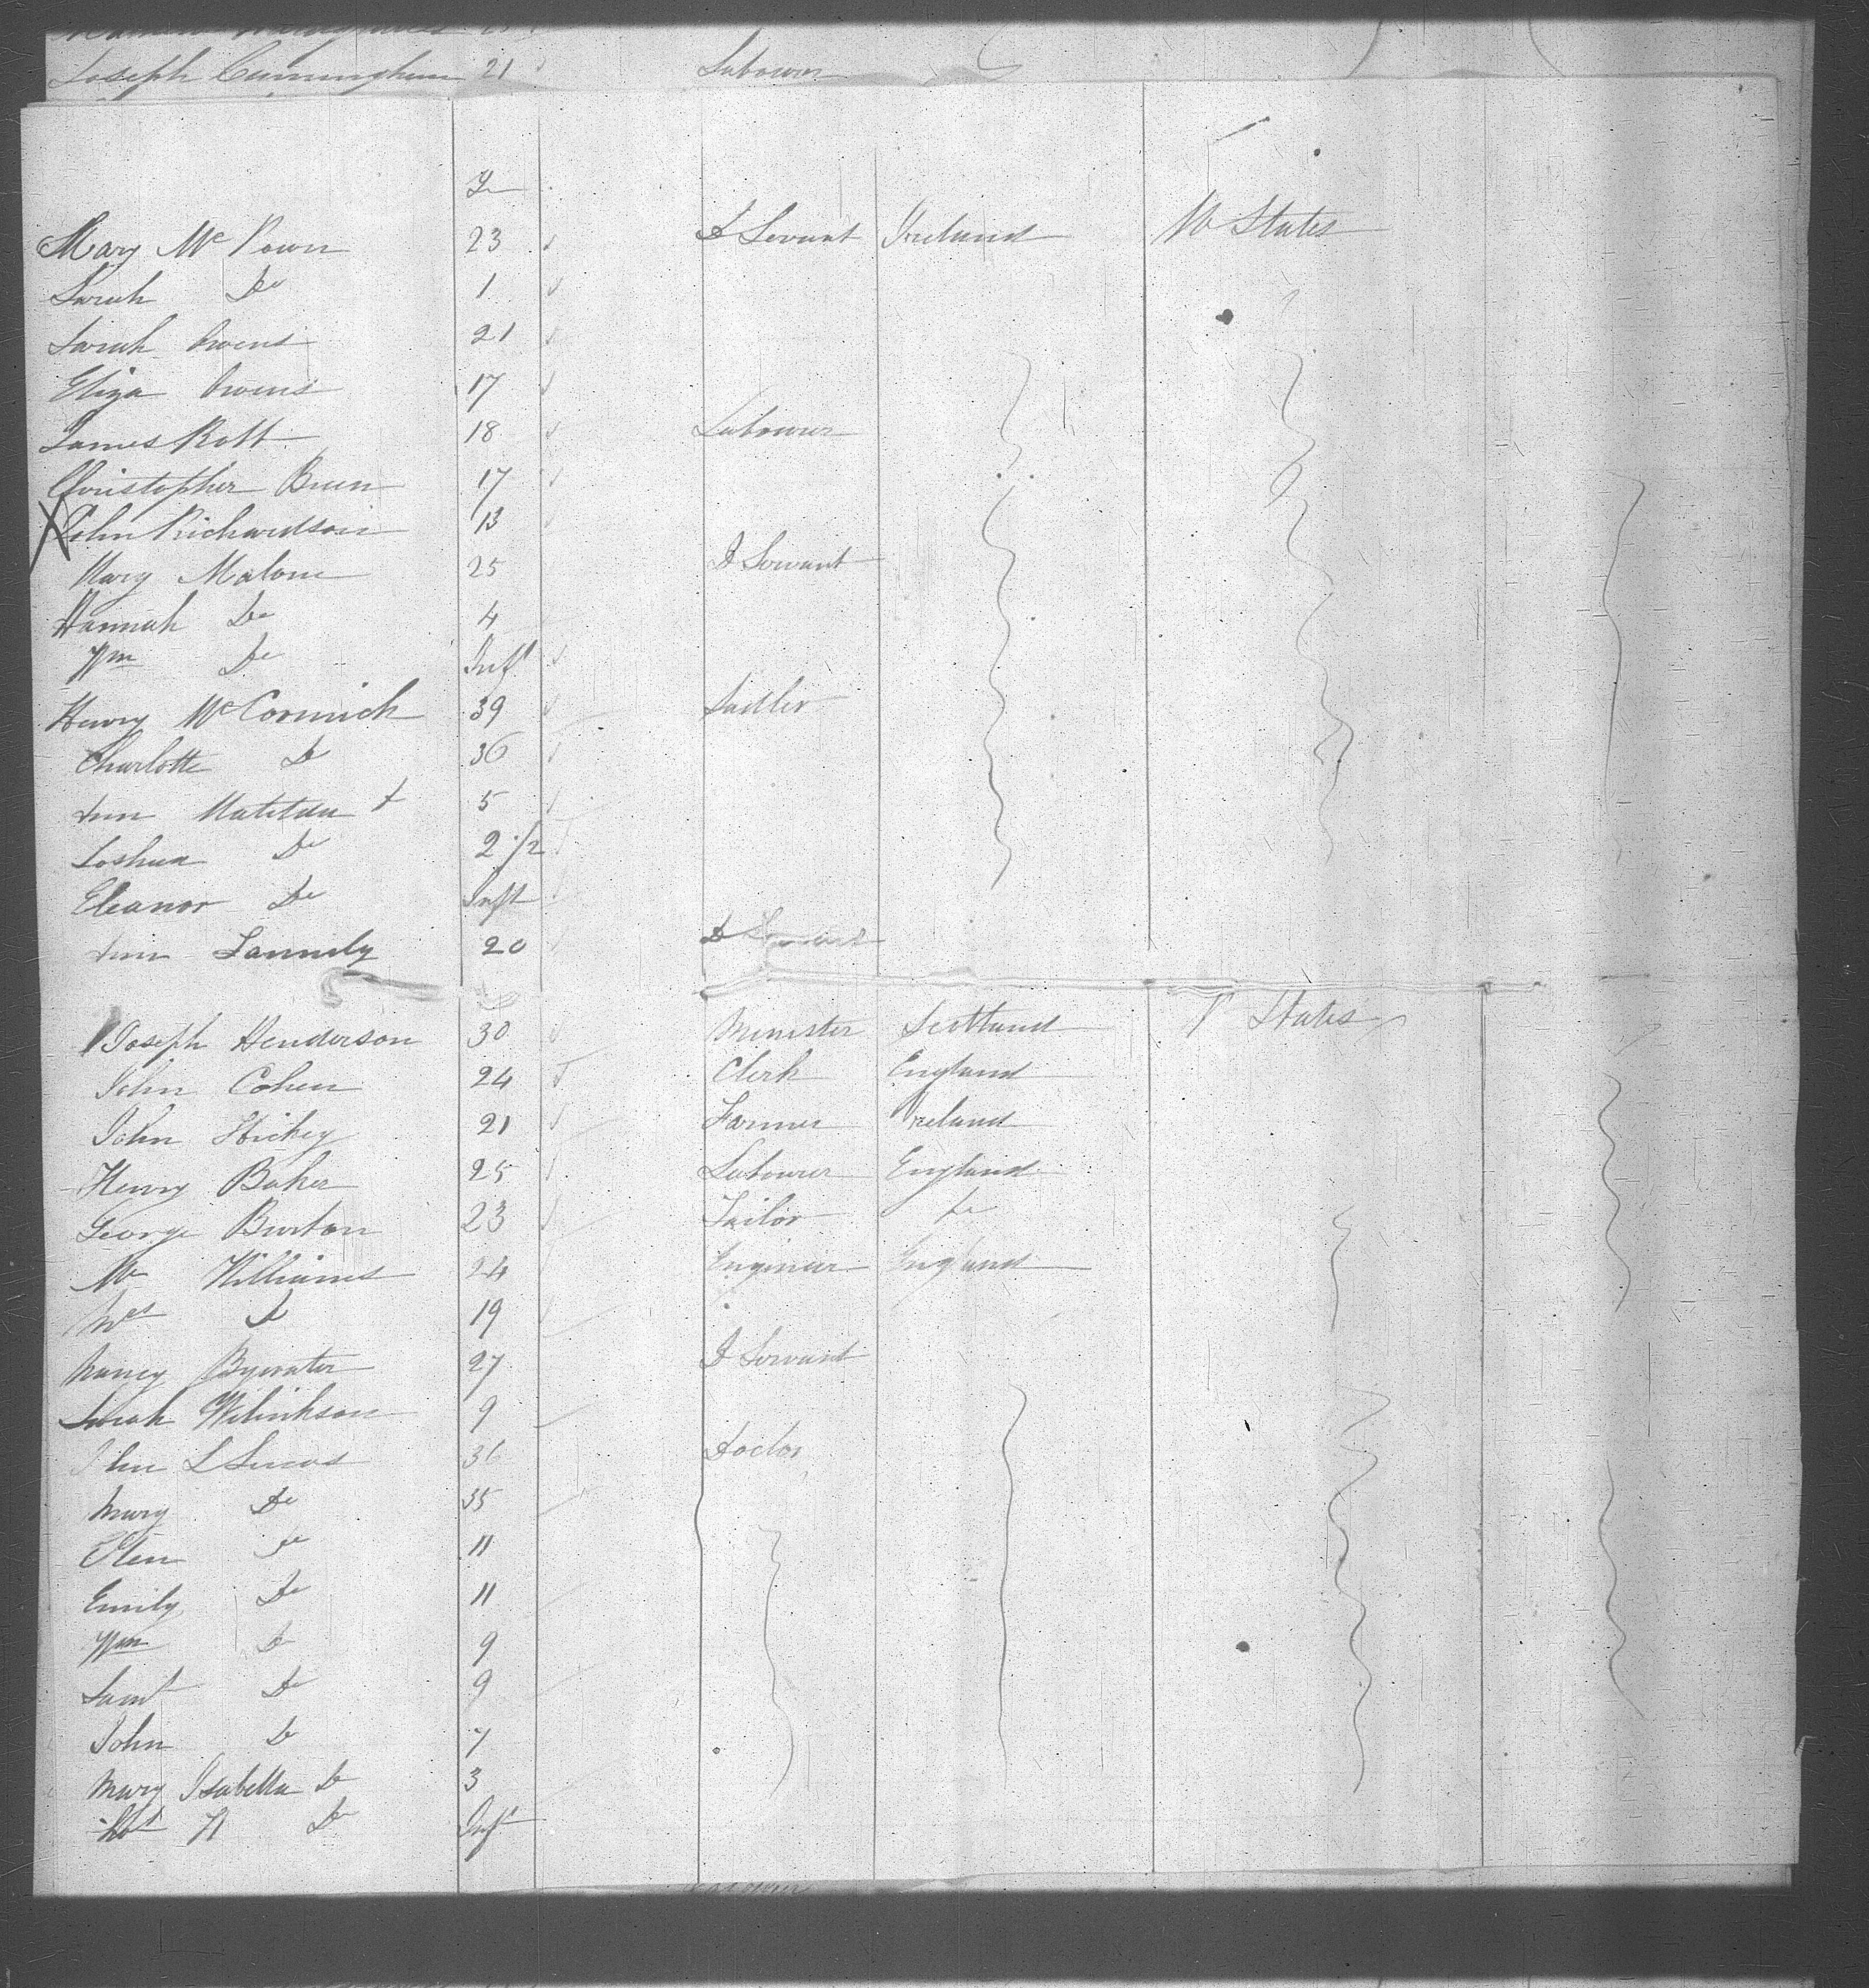 Joseph Cunningham 21 Labourer
Y
Mary McKown 23 D Servant Ireland U States
Sarah Do 1
Sarah Owens 21
Eliza Owens 17
James Rott 18 Labourer
Christopher Breen 17
John Richardson 13
Mary Malone 25 D Servant
Hannah Do 4
Wm Do Inft
Henry McCormick 39 Sadler
Charlotte Do 36
Ann Matilda 5
Joshua Do 2 1/2
Eleanor Do Inft
Ann 20 D Servant
Joseph Henderson 30 Minister Scotland U States
John Cohen 24 Clerk England
John Hickey 21 Farmer Ireland
Henry Baker 25 Labourer England
George Burton 23 Tailor Do
Mr Williams 24 Engineer England
Mrs Do 19
Nancy Bywater 27 D Servant
Sarah Wilinkson 9
John L Lucas 36 Doctor
Mary Do 35
Ellen Do 11
Emily Do 11
Wm Do 9
Saml Do 9
John Do 7
Mary Isabella Do 3
Do Inft